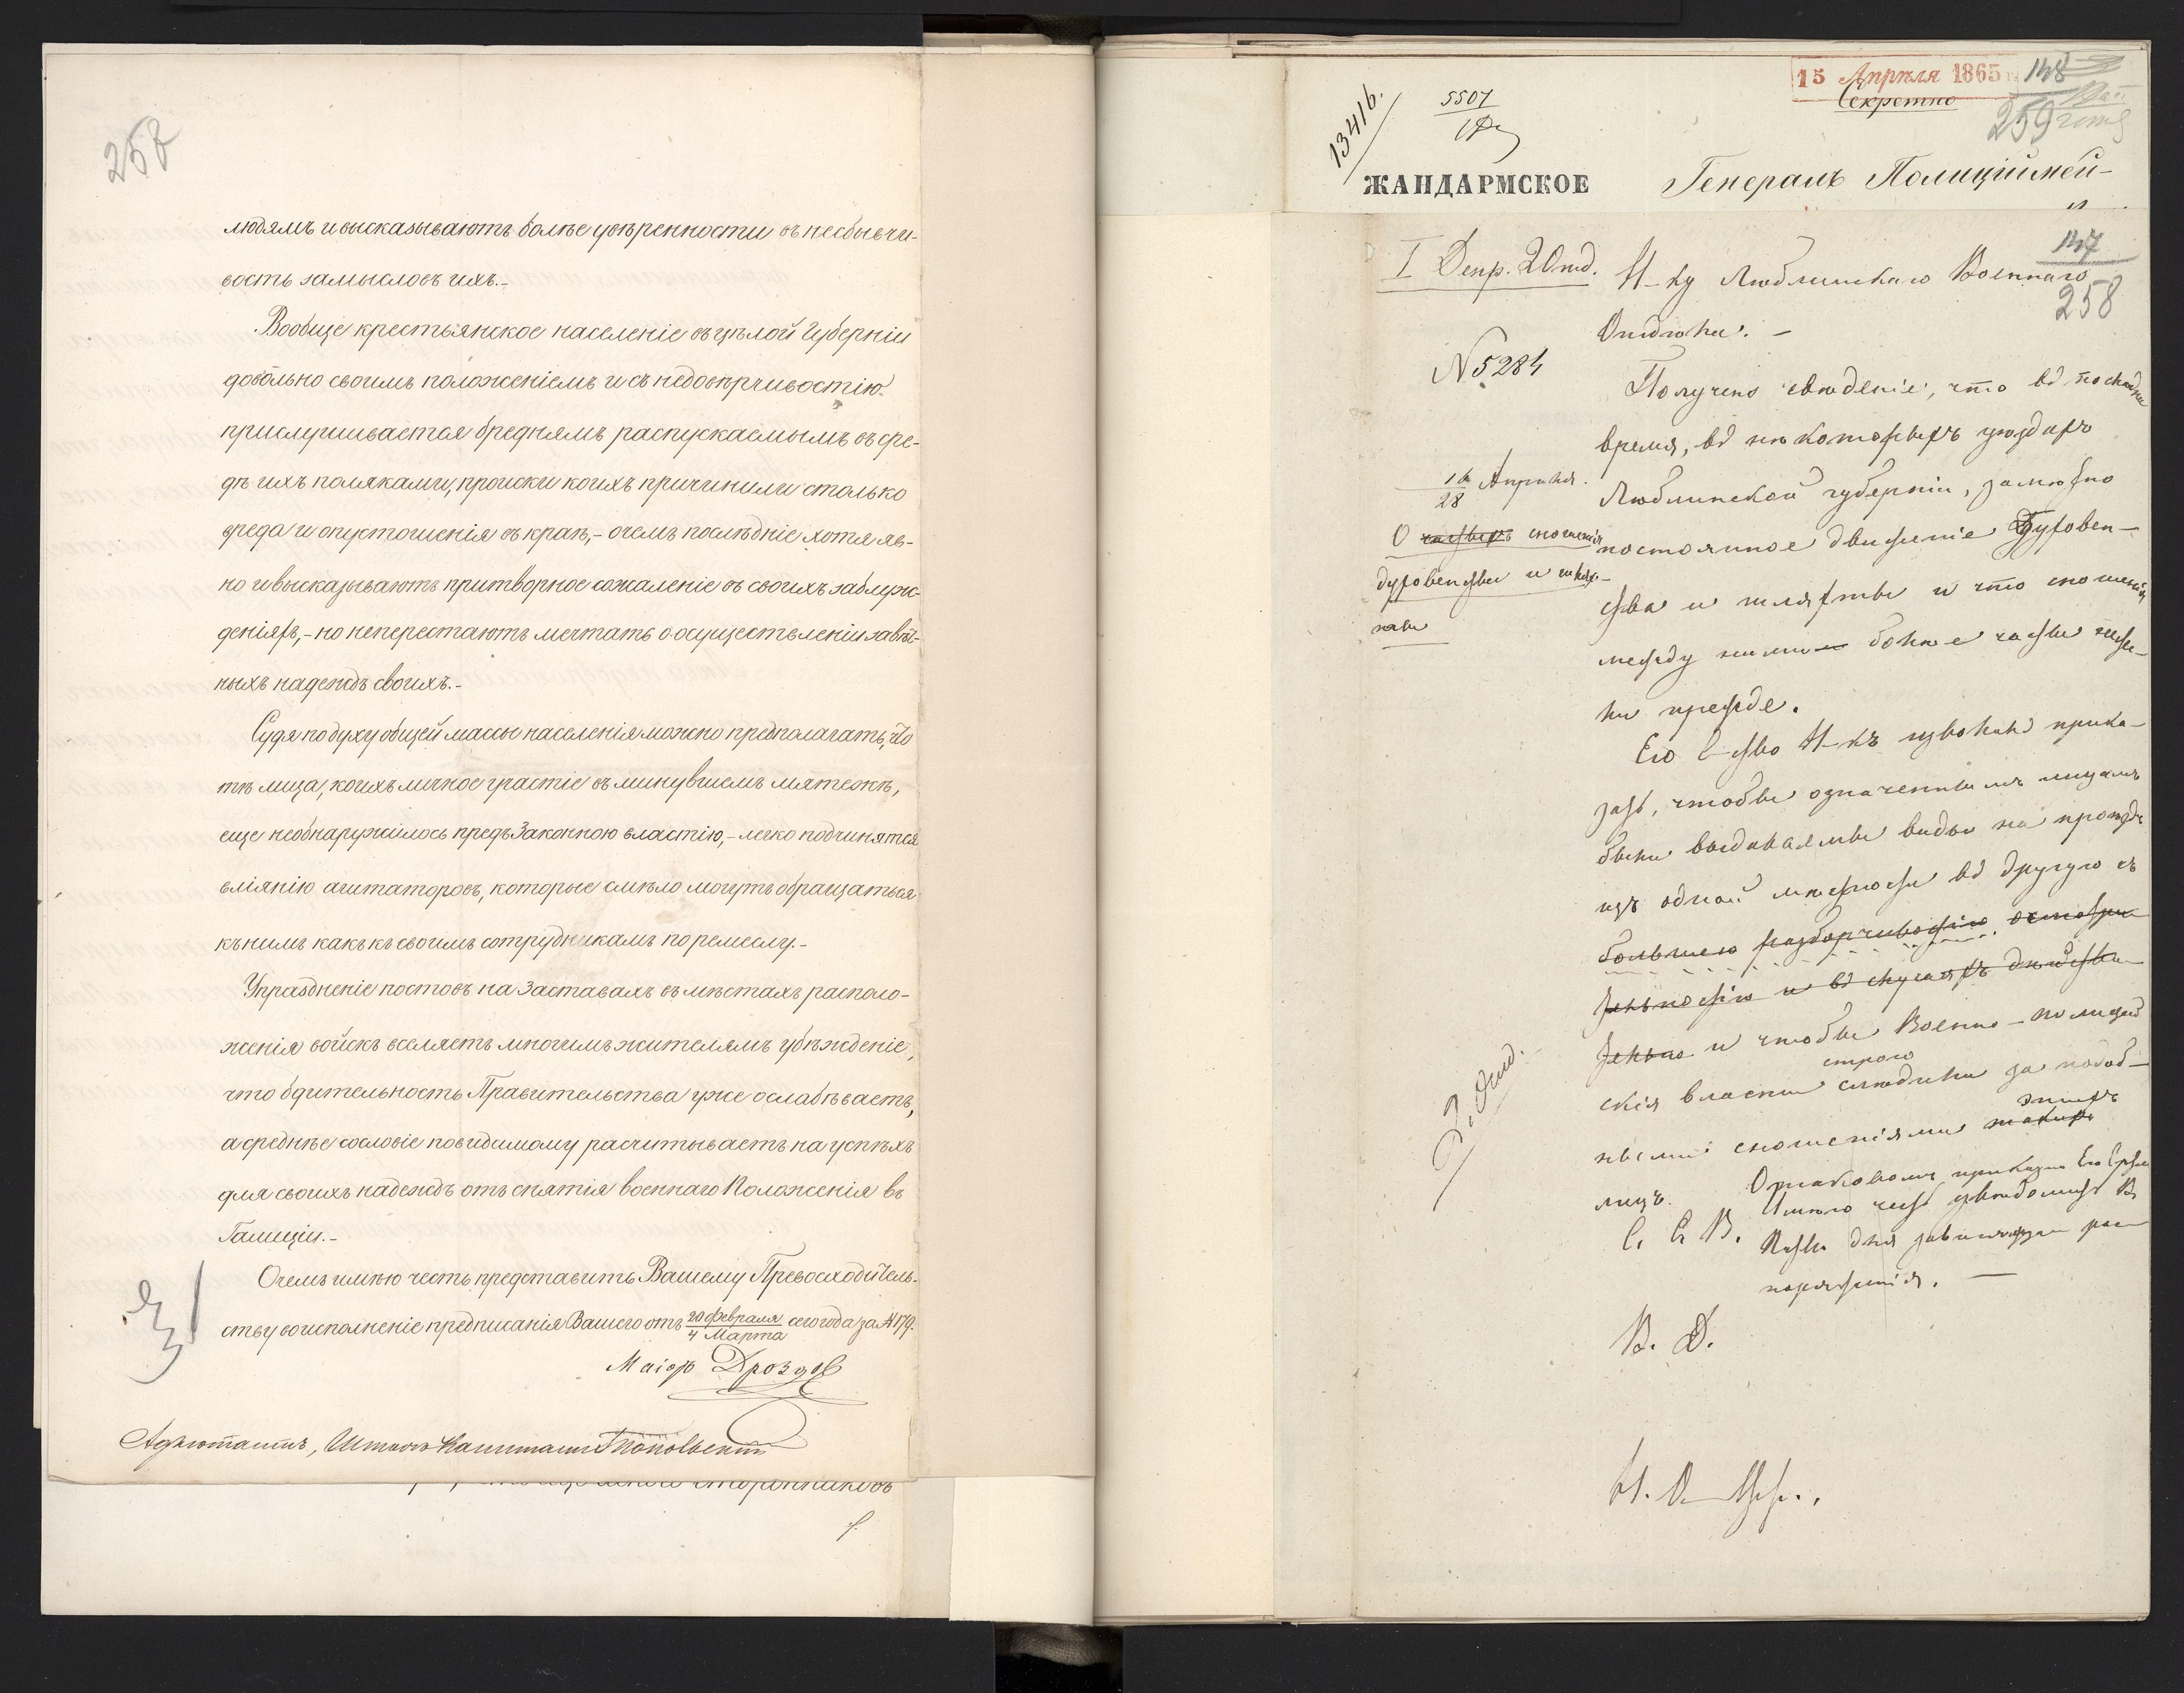 258
людямъ и высказываютъ болѣе увѣренности въ несбывчи-
вость замысловъ ихъ.-
Вообще крестьянское населеніе въ цѣлой Губерніи
довольно своимъ положеніемъ и съ недовѣрчивостію
прислушивается бреднямъ распускаемымъ въ сре-
дѣ ихъ поляками, происки коихъ причинили столько
вреда и опустошенія въ краѣ,- о чемъ послѣдніе хотя яв-
но и высказываютъ притворное сожаленіе въ своихъ заблуж-
деніяхъ,- но неперестаютъ мечтать о осуществленіи завѣт-
ныхъ надеждъ своихъ.-
Судя по духу общей массы населенія можно предполагать, что
тѣ лица, коихъ личное участіе въ минувшемъ мятежѣ,
еще необнаружилось предъ Законною властію,- легко подчинятся
вліянію агитаторовъ, которые смѣло могутъ обращаться
къ нимъ какъ къ своимъ сотрудникамъ по ремеслу.-
Упраздненіе постовъ на Заставахъ въ мѣстахъ располо-
женія войскъ вселяетъ многимъ жителямъ убѣжденіе,
что бдительность Правительства уже ослабѣваетъ,
а среднѣе сословіе повидимому расчитываетъ на успѣхъ
для своихъ надеждъ отъ снятія военнаго Положенія въ
Галиціи.-
О чемъ имѣю честь представить Вашему Превосходитель-
ству во исполненіе предписанія Вашего отъ 20 Февраля / 4 Марта сего года за № 179.
Маіоръ Дроздовъ
Адъютантъ, Штабсъ-Капитанъ
сторонниковъ
15 Апрѣля 1865
148
Секретно
259
13416.
5507
ЖАНДАРМСКОЕ
Генералъ Полиціймей-
147
258
I Депр. 2 Отд.
Н-ку Люблинскаго Военнаго
Отдѣла. -
№ 5284
Получено свѣдѣніе, что въ послѣднее
время, въ нѣкоторыхъ уѣздахъ
16/28 Апрѣля.
Люблинской губерніи, замѣтно
О частыхъ сношеніяхъ
постоянное движеніе Духовен-
духовенства и шлях-
ства и шляхты и что сношенія
ты
между ними болѣе часты неже-
ли прежде.
Его С-ство Н-къ изволилъ прика-
зать, чтобы означеннымъ лицамъ
были выдаваемы виды на проѣздъ
изъ одной мѣстности въ другую съ
большею разборчивостію, осмотри-
тельностію и въ случаяхъ дѣйстви-
тельно и чтобы Военно-полицей
строго
скія власти слѣдили за подоб-
этихъ
ными сношеніями такихъ
лицъ.
О таковомъ приказаніи Его
Имѣю честь увѣдомить В.
С. Е. В.
для зависящаго рас-
поряженія. -
В. Д.